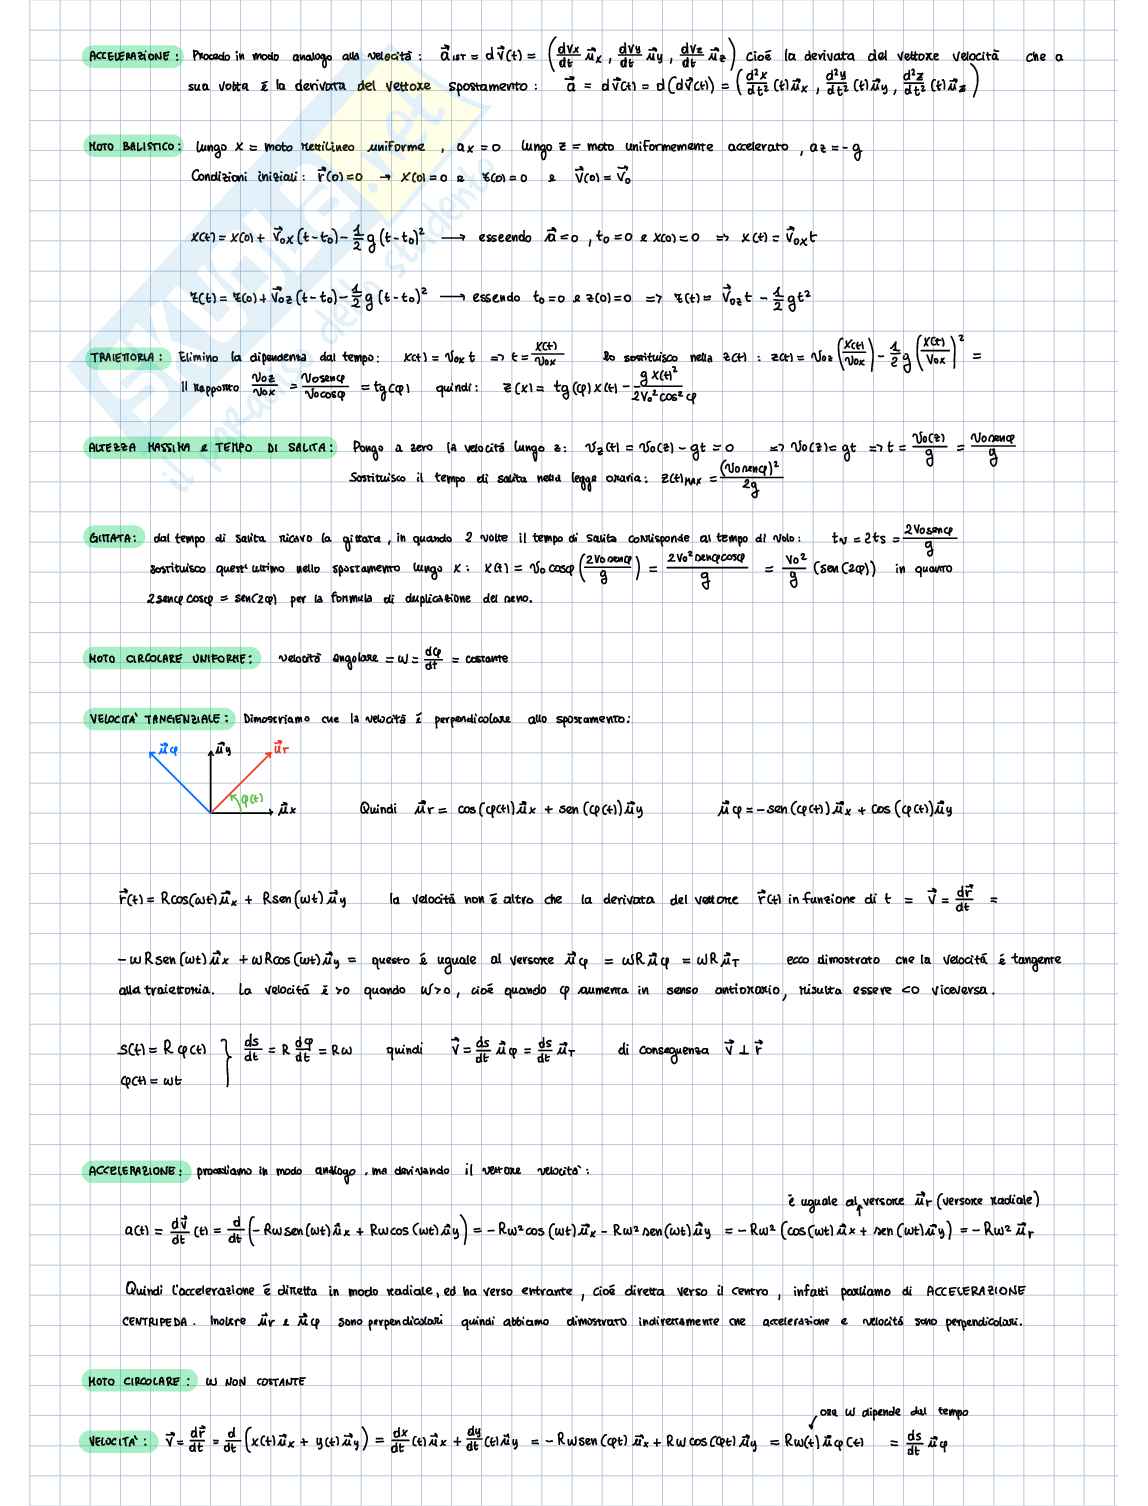 ACCELERAZIONE: Procedo in modo analogo alla velocità: a⃗ IST = d v⃗(t) = (dVx/dt μ⃗x, dVy/dt μ⃗y, dVz/dt μ⃗z) cioé la derivata del vettore velocità che a
sua volta é la derivata del vettore spostamento: a⃗ = d v⃗(t) = d(d v⃗(t)) = (d²x/dt² (t) μ⃗x, d²y/dt² (t) μ⃗y, d²z/dt² (t) μ⃗z)
MOTO BALISTICO: lungo x = moto rettilineo uniforme, ax = 0 lungo z = moto uniformemente accelerato, az = -g
Condizioni iniziali: r⃗(0)=0 → x(0)=0 e z(0)=0 e v⃗(0)=v⃗o
x(t) = x(0) + v⃗ox (t-to) - 1/2 g (t-to)² ⟶ esseendo a⃗=0, to=0 e x(0)=0 => x(t) = v⃗ox t
z(t) = z(0) + v⃗oz (t-to) - 1/2 g (t-to)² ⟶ essendo to=0 e z(0)=0 => z(t) = v⃗oz t - 1/2 gt²
TRAIETTORIA: Elimino la dipendenza dal tempo: x(t) = vox t => t = x(t)/vox lo sostituisco nella z(t): z(t) = voz (x(t)/vox) - 1/2 g (x(t)/vox)² =
Il rapporto voz/vox = vo senφ/vo cosφ = tg(φ) quindi: z(x) = tg(φ) x(t) - g x(t)²/2vo² cos²φ
ALTEZZA MASSIMA e TEMPO DI SALITA: Pongo a zero la velocitá lungo z: vz(t) = vo(z) - gt = 0 => vo(z) = gt => t = vo(z)/g = vo senφ/g
Sostituisco il tempo di salita nella legge oraria: z(t)MAX = (vo senφ)²/2g
GITTATA: dal tempo di salita ricavo la gittata, in quando 2 volte il tempo di salita corrisponde al tempo di volo: tv = 2ts = 2vo senφ/g
sostituisco quest'ultimo nello spostamento lungo x: x(t) = vo cosφ (2vo senφ/g) = 2vo² senφ cosφ/g = vo²/g (sen(2φ)) in quanto
2senφ cosφ = sen(2φ) per la formula di duplicazione del seno.
MOTO CIRCOLARE UNIFORME: velocità angolare = ω = dφ/dt = costante
VELOCITA' TANGENZIALE: Dimostriamo che la velocitá é perpendicolare allo spostamento:
μ⃗φ μ⃗y μ⃗r
φ(t) μ⃗x Quindi μ⃗r = cos(φ(t)) μ⃗x + sen(φ(t)) μ⃗y μ⃗φ = -sen(φ(t)) μ⃗x + cos(φ(t)) μ⃗y
r⃗(t) = Rcos(ωt) μ⃗x + Rsen(ωt) μ⃗y la velocitá non é altro che la derivata del vettore r⃗(t) in funzione di t = v⃗ = dr⃗/dt =
-ωRsen(ωt) μ⃗x + ωRcos(ωt) μ⃗y = questo é uguale al versore μ⃗φ = ωR μ⃗φ = ωR μ⃗T ecco dimostrato che la velocitá é tangente
alla traiettoria. La velocitá é >0 quando ω>0, cioé quando φ aumenta in senso antiorario, risulta essere <0 viceversa.
s(t) = R φ(t) } ds/dt = R dφ/dt = Rω quindi v⃗ = ds/dt μ⃗φ = ds/dt μ⃗T di conseguenza v⃗ ⊥ r⃗
φ(t) = ωt
ACCELERAZIONE: procediamo in modo analogo, ma derivando il vettore velocità:
é uguale al versore μ⃗r (versore radiale)
a(t) = dv⃗/dt (t) = d/dt (-Rωsen(ωt) μ⃗x + Rωcos(ωt) μ⃗y) = -Rω²cos(ωt) μ⃗x - Rω²sen(ωt) μ⃗y = -Rω² (cos(ωt) μ⃗x + sen(ωt) μ⃗y) = -Rω² μ⃗r
Quindi l'accelerazione é diretta in modo radiale, ed ha verso entrante, cioé diretta verso il centro, infatti parliamo di ACCELERAZIONE
CENTRIPEDA. Inoltre μ⃗r e μ⃗φ sono perpendicolari quindi abbiamo dimostrato indirettamente che accelerazione e velocitá sono perpendicolari.
MOTO CIRCOLARE: ω NON COSTANTE
ora ω dipende dal tempo
VELOCITA': v⃗ = dr⃗/dt = d/dt (x(t) μ⃗x + y(t) μ⃗y) = dx/dt (t) μ⃗x + dy/dt (t) μ⃗y = -Rωsen(φt) μ⃗x + Rωcos(φt) μ⃗y = Rω(t) μ⃗φ(t) = ds/dt μ⃗φ
SKUOLA.net